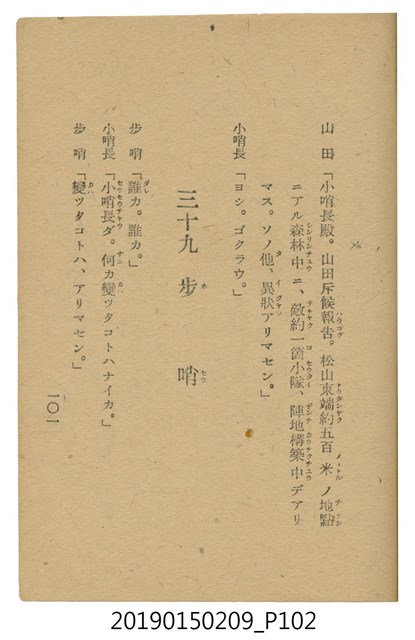 山田「小哨長殿。山田斥候報告。松山東端約五百米ノ地點
ニアル森林中ニ、敵約一箇小隊、陣地構築中デアリ
マス。ソノ他、異狀アリマセン。」
小哨長「ヨシ。ゴクラウ。」
三十九 步哨
步哨「誰カ。誰カ。」
小哨長「小哨長ダ。何カ變ツタコトハナイカ。」
步哨「變ツタコトハ、アリマセン。」
一〇一
20190150209_P102